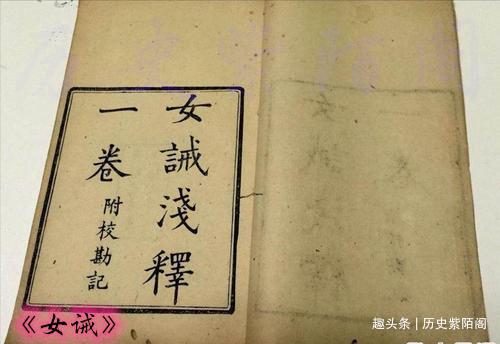 女誡淺釋
一卷附校勘記
《女诫》
趣头条 | 历史紫陌阁